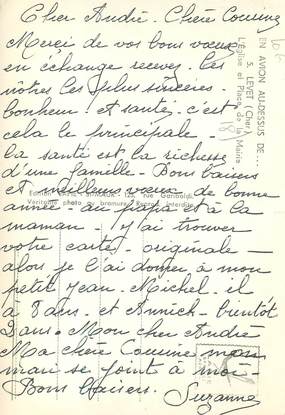 Cher André. Chère Cousine
Merci de vos bons vœux
en échange recevez. les
nôtres les plus sincères.
bonheur et santé, c'est
cela le principale
la santé est la richesse
d'une famille - Bons baisers
et meilleurs vœux de bonne
année - au papa et à la
maman - j'ai trouver
votre carte - originale -
alors je l'ai donner à mon
petit Jean. Michel. il
a 8 ans. et Annick - bientôt
2 ans. Mon cher André
Ma chère Cousine mon
mari se joint à moi -
Bons baisers. Suzanne
EN AVION AU-DESSUS DE ...
5. LEVET (Cher)
L'Église et Place de la Mairie
Rue Garibaldi
Véritable photo au bromure. Repr. interdite